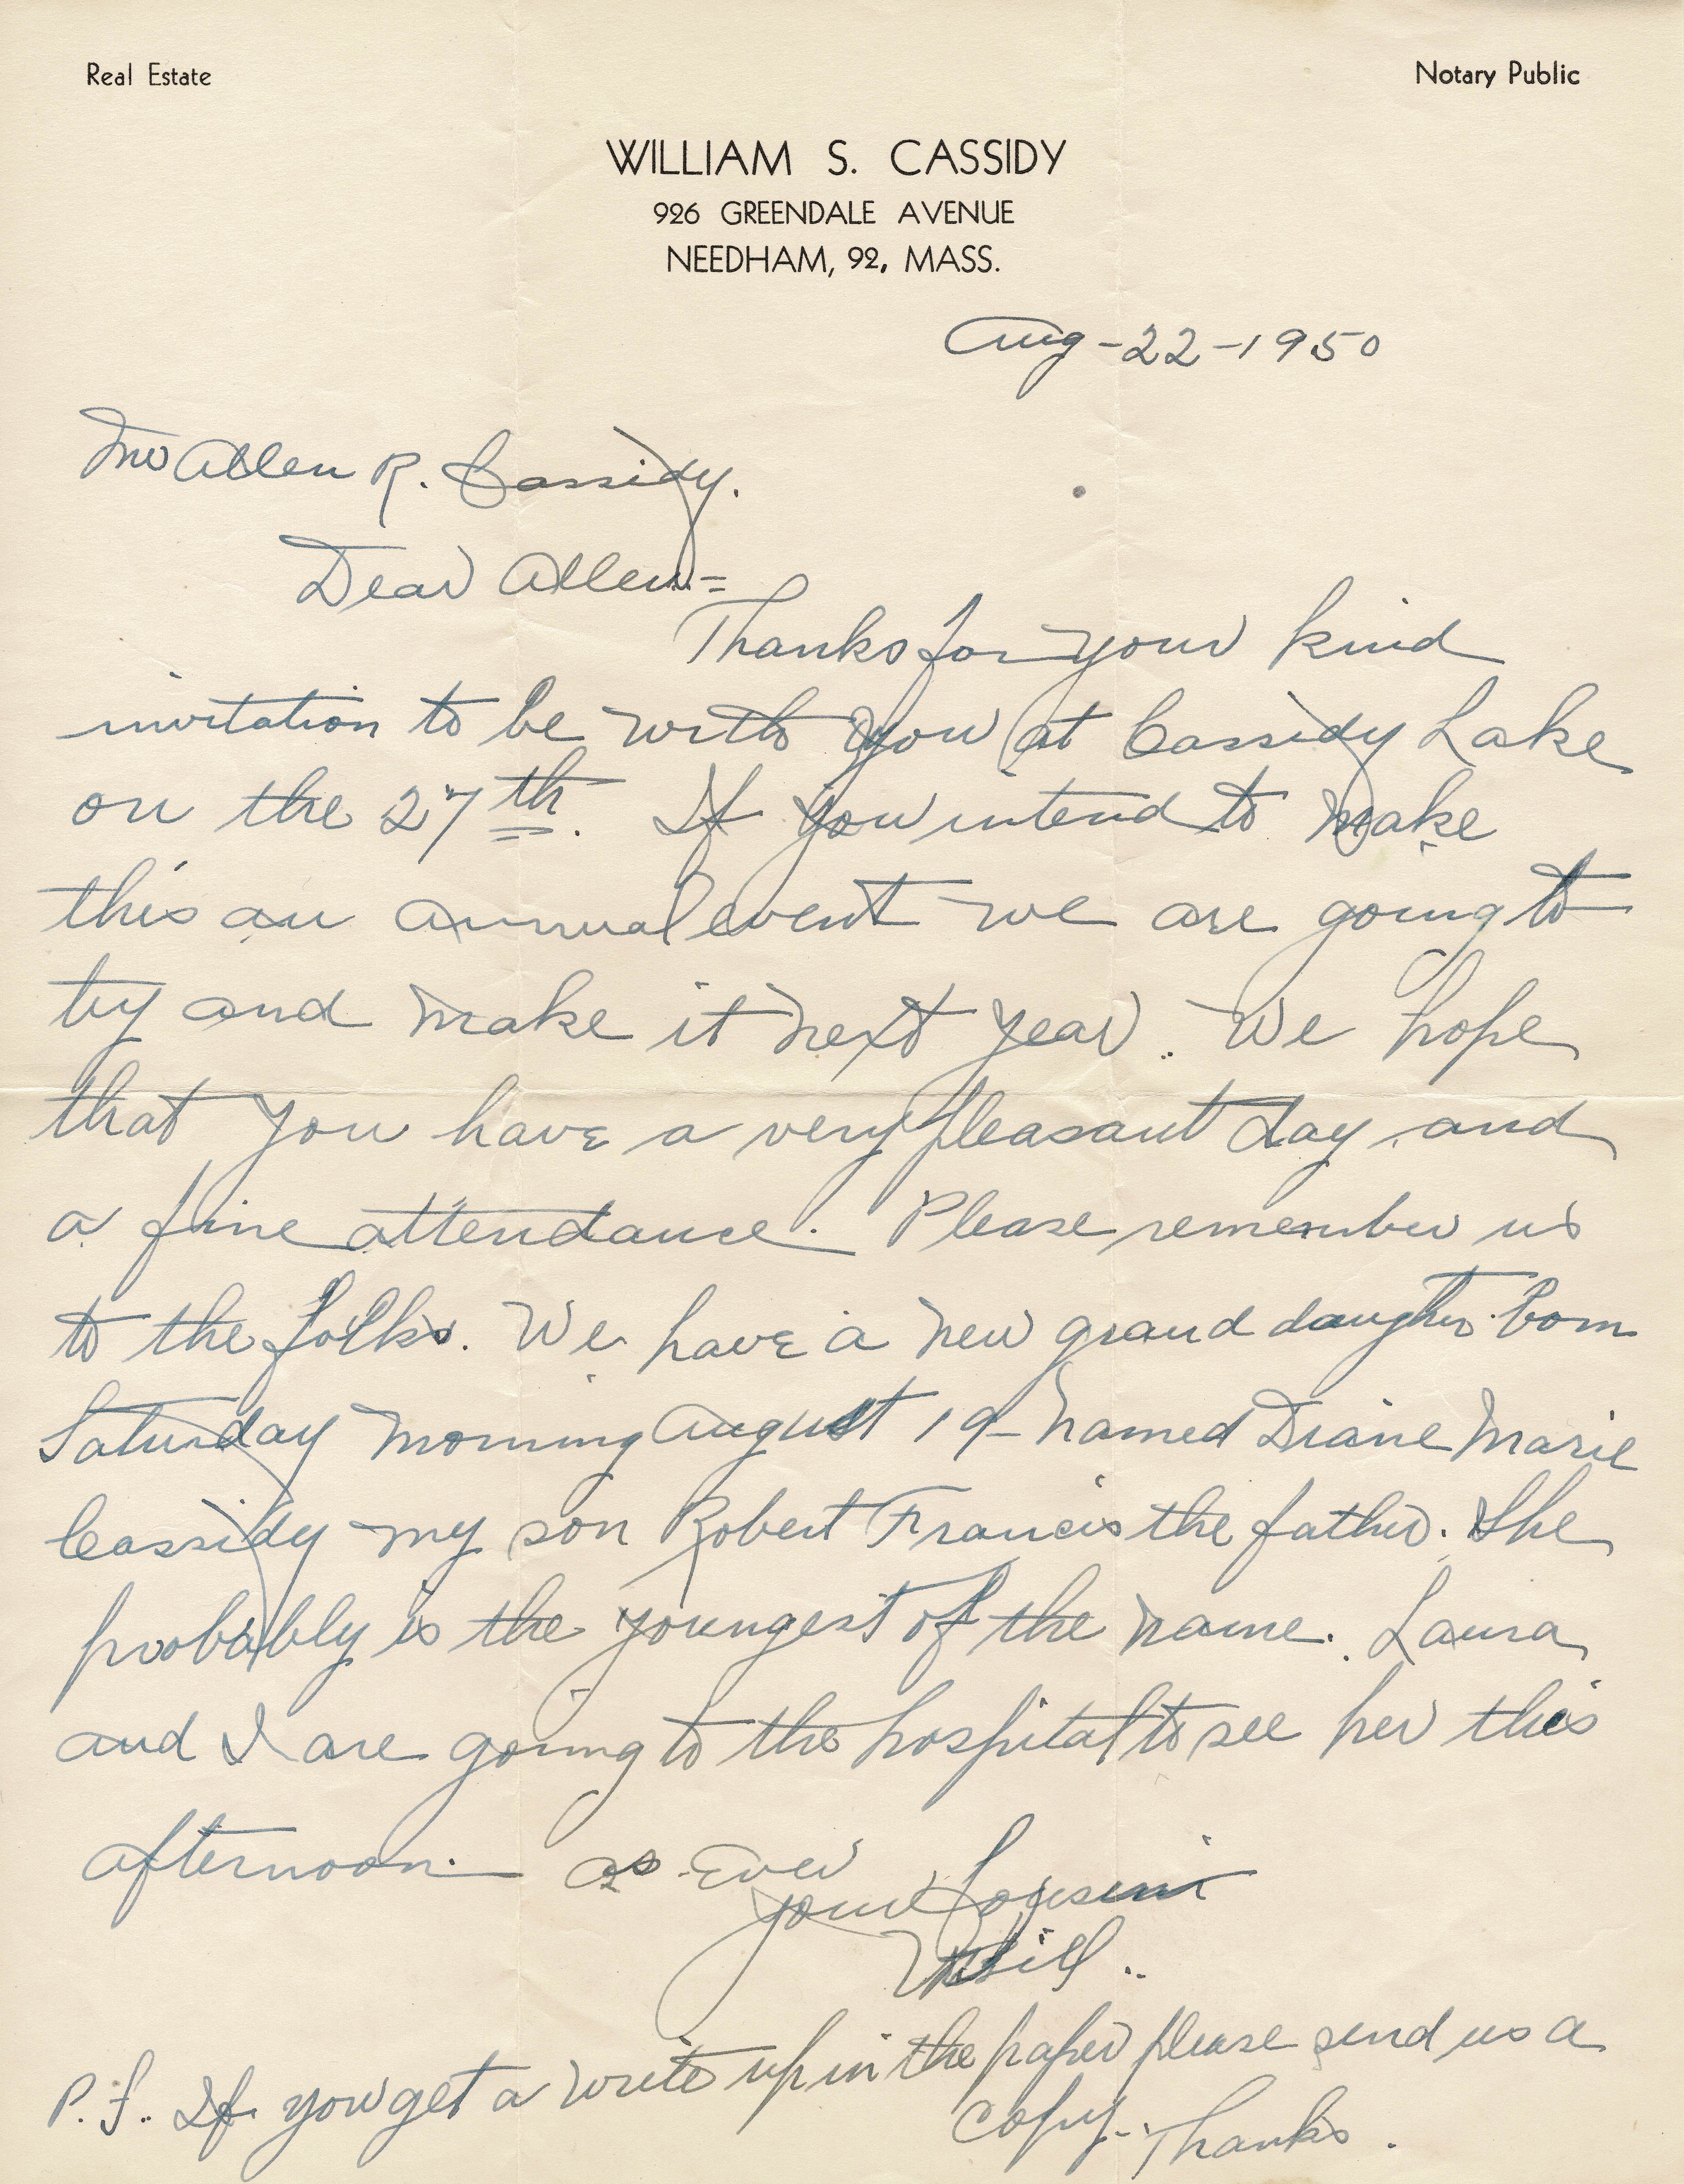 Real Estate
Notary Public
WILLIAM S. CASSIDY
926 GREENDALE AVENUE
NEEDHAM, 92, MASS.
Aug-22-1950
Mr Allen R. Cassidy.
Dear Allen:=
Thanks for your kind
invitation to be with you at Cassidy Lake
on the 27th. If you intend to make
this an annual event we are going to
try and make it next year. We hope
that you have a very pleasant day and
a fine attendance. Please remember us
to the folks. We have a new grand daughter born
Saturday morning August 19- named Diane Marie
Cassidy my son Robert Francis the father. She
probably is the youngest of the name. Laura
and I are going to the hospital to see her this
afternoon. As Ever
your Cousin
Will..
P.S.. If you get a write up in the paper please send us a
Copy-. Thanks.